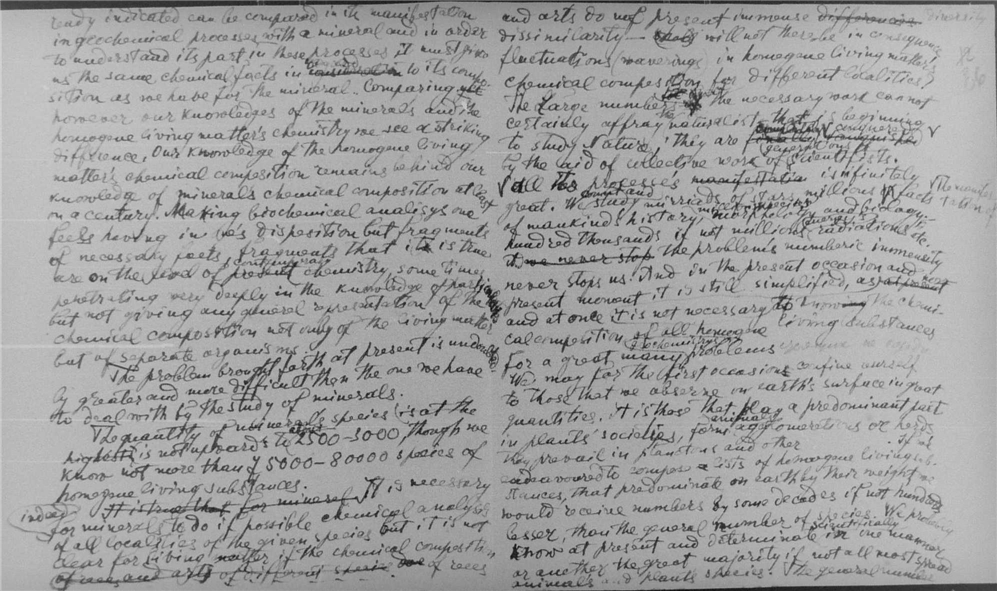 ready indicated can be compared in its manifestation
in geochemical processes with a mineral and in order
to understand its part in these processes it must give
us the same chemical facts in consideration to its compo-
sition as we have for the mineral. Comparing
however our knowledges of the minerals and the
homogene living matter's chemistry we see a striking
difference. Our knowledge of the homogene living
matter's chemical composition remains behind our
knowledge of minerals chemical composition at least
on a century. Making biochemical analisys one
feels having in disposition but fragments
of necessary facts, fragments that it is true
are on the level of present chemistry, some times
penetrating very deeply in the knowledge of
but not giving any general representation of the
chemical composition not only of the living matter
but of separate organisms.
The problem brought forth at present is
by greater and more difficult than the one we have
to deal with by the study of minerals.
The quantity of minerals species is at the
highest is not upwards to 2500-3000, though we
know not more than 75000-80000 species of
homogene living substances.
indeed It is true that for mineral It is necessary
for minerals to do if possible chemical analyses
of all localities of the given species but it is not
clear for living matter if the chemical composition
of races and arts of different species of races
and arts do not present immense differences diversity
dissimilarity - will not there be in consequence
fluctuations, waverings in homogene living matter's
chemical composition for different localities?
The large number of the necessary work cannot
certainly affray naturalist that is beginning
to study Nature; they are conquered
generations
by the aid of collective work of scientists.
all the processes manifestation is infinitely
great. We study myriads of stars, millions of facts
of mankind's history, morphology and biology,
hundred thousands if not millions radiations etc.
we never stop the problem's numeric immensity
never stops us. And in the present occasion and
present moment it is still simplified, as
and at once it is not necessary to know the chemi-
cal composition of all homogene living substances
for a great many geochemistry problems
We may for the first occasions confine ourself
to those that we observe on earth's surface in great
quantities. it is those that play a predominant part
in plants' societies, form animals agglomerations or herds
they prevail in planctons and other if as
endeavoured to compose a lists of homogene living sub-
stances, that predominate on earth by their weight we
would receive numbers by some decades if not hundreds
lesser, than the general number of species. We presently
know at present and determinate scientifically in one manner
or another the great majority if not all most spread
animals and plants species. The general number